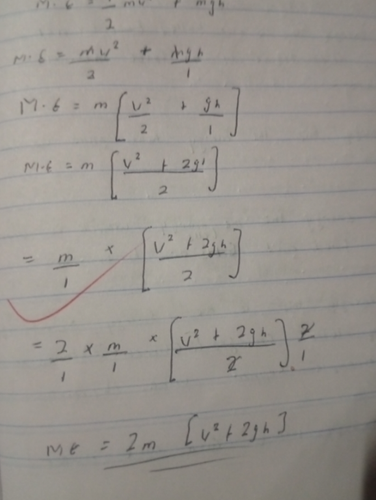 M.E = 1/2 mv² + mgh
M.E = mv²/2 + mgh/1
M.E = m [v²/2 + gh/1]
M.E = m [(v² + 2g)/2]
= m/1 × [(v² + 2gh)/2]
= 2/1 × m/1 × [(v² + 2gh)/2] 2/1
ME = 2m [v² + 2gh]